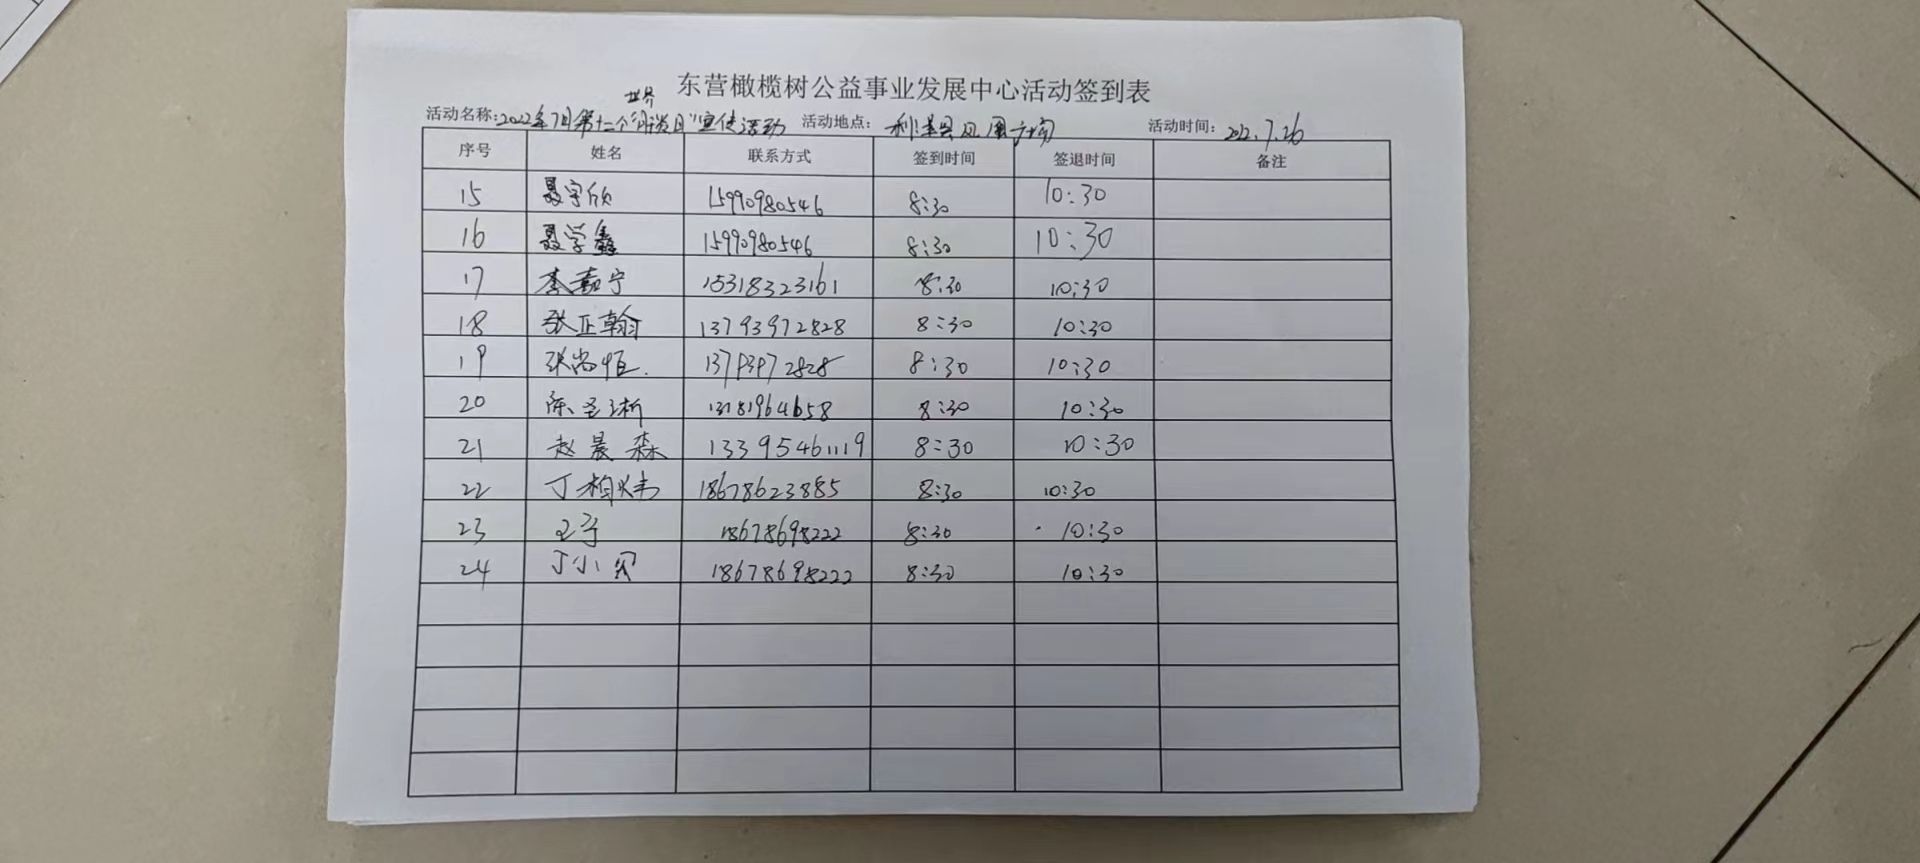 东营橄榄树公益事业发展中心活动签到表
世界
活动名称:2022年7月第十二个"肝炎日"宣传活动 活动地点: 利津县凤凰广场 活动时间: 2022.7.26
序号 姓名 联系方式 签到时间 签退时间 备注
15 聂宇欣 15990980546 8:30 10:30
16 聂学鑫 15990980546 8:30 10:30
17 李嘉宁 15318323161 8:30 10:30
18 张正翰 13793972828 8:30 10:30
19 张尚恒. 13793972828 8:30 10:30
20 陈圣 8:30 10:30
21 赵晨森 13395461119 8:30 10:30
22 丁柏炜 18678623885 8:30 10:30
23 王 18678698222 8:30 10:30
24 丁小贝 18678698222 8:30 10:30